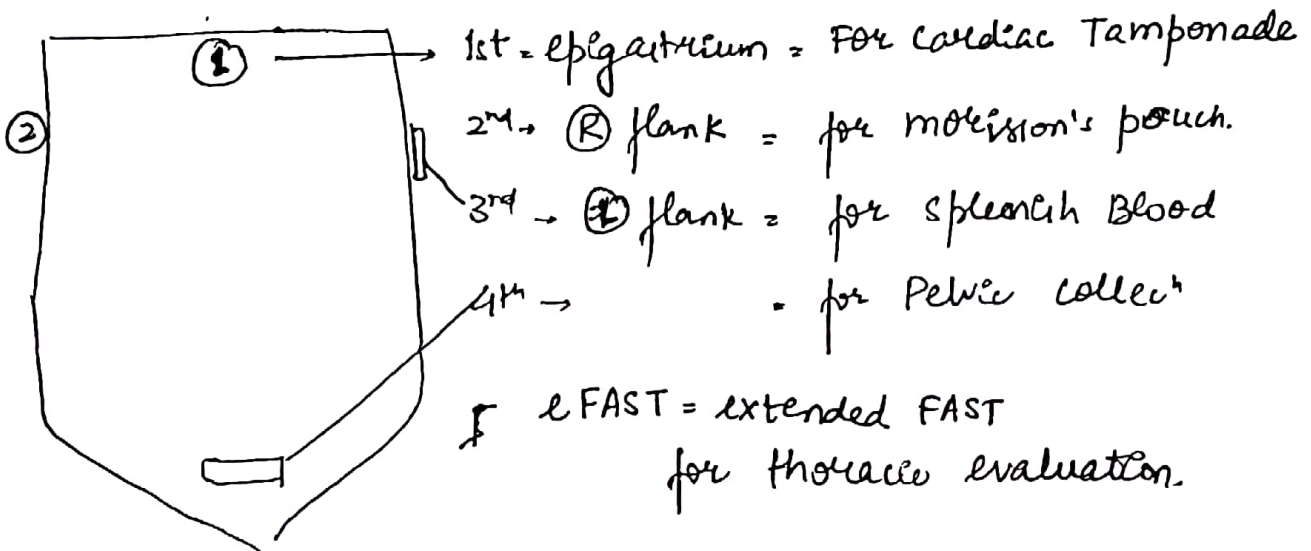 ① → 1st = epigastrium = For Cardiac Tamponade
② 2nd → Ⓡ flank = for morisson's pouch.
3rd → Ⓛ flank = for splenich Blood
4th → = for Pelvic collecⁿ
eFAST = extended FAST
for thoracic evaluation.